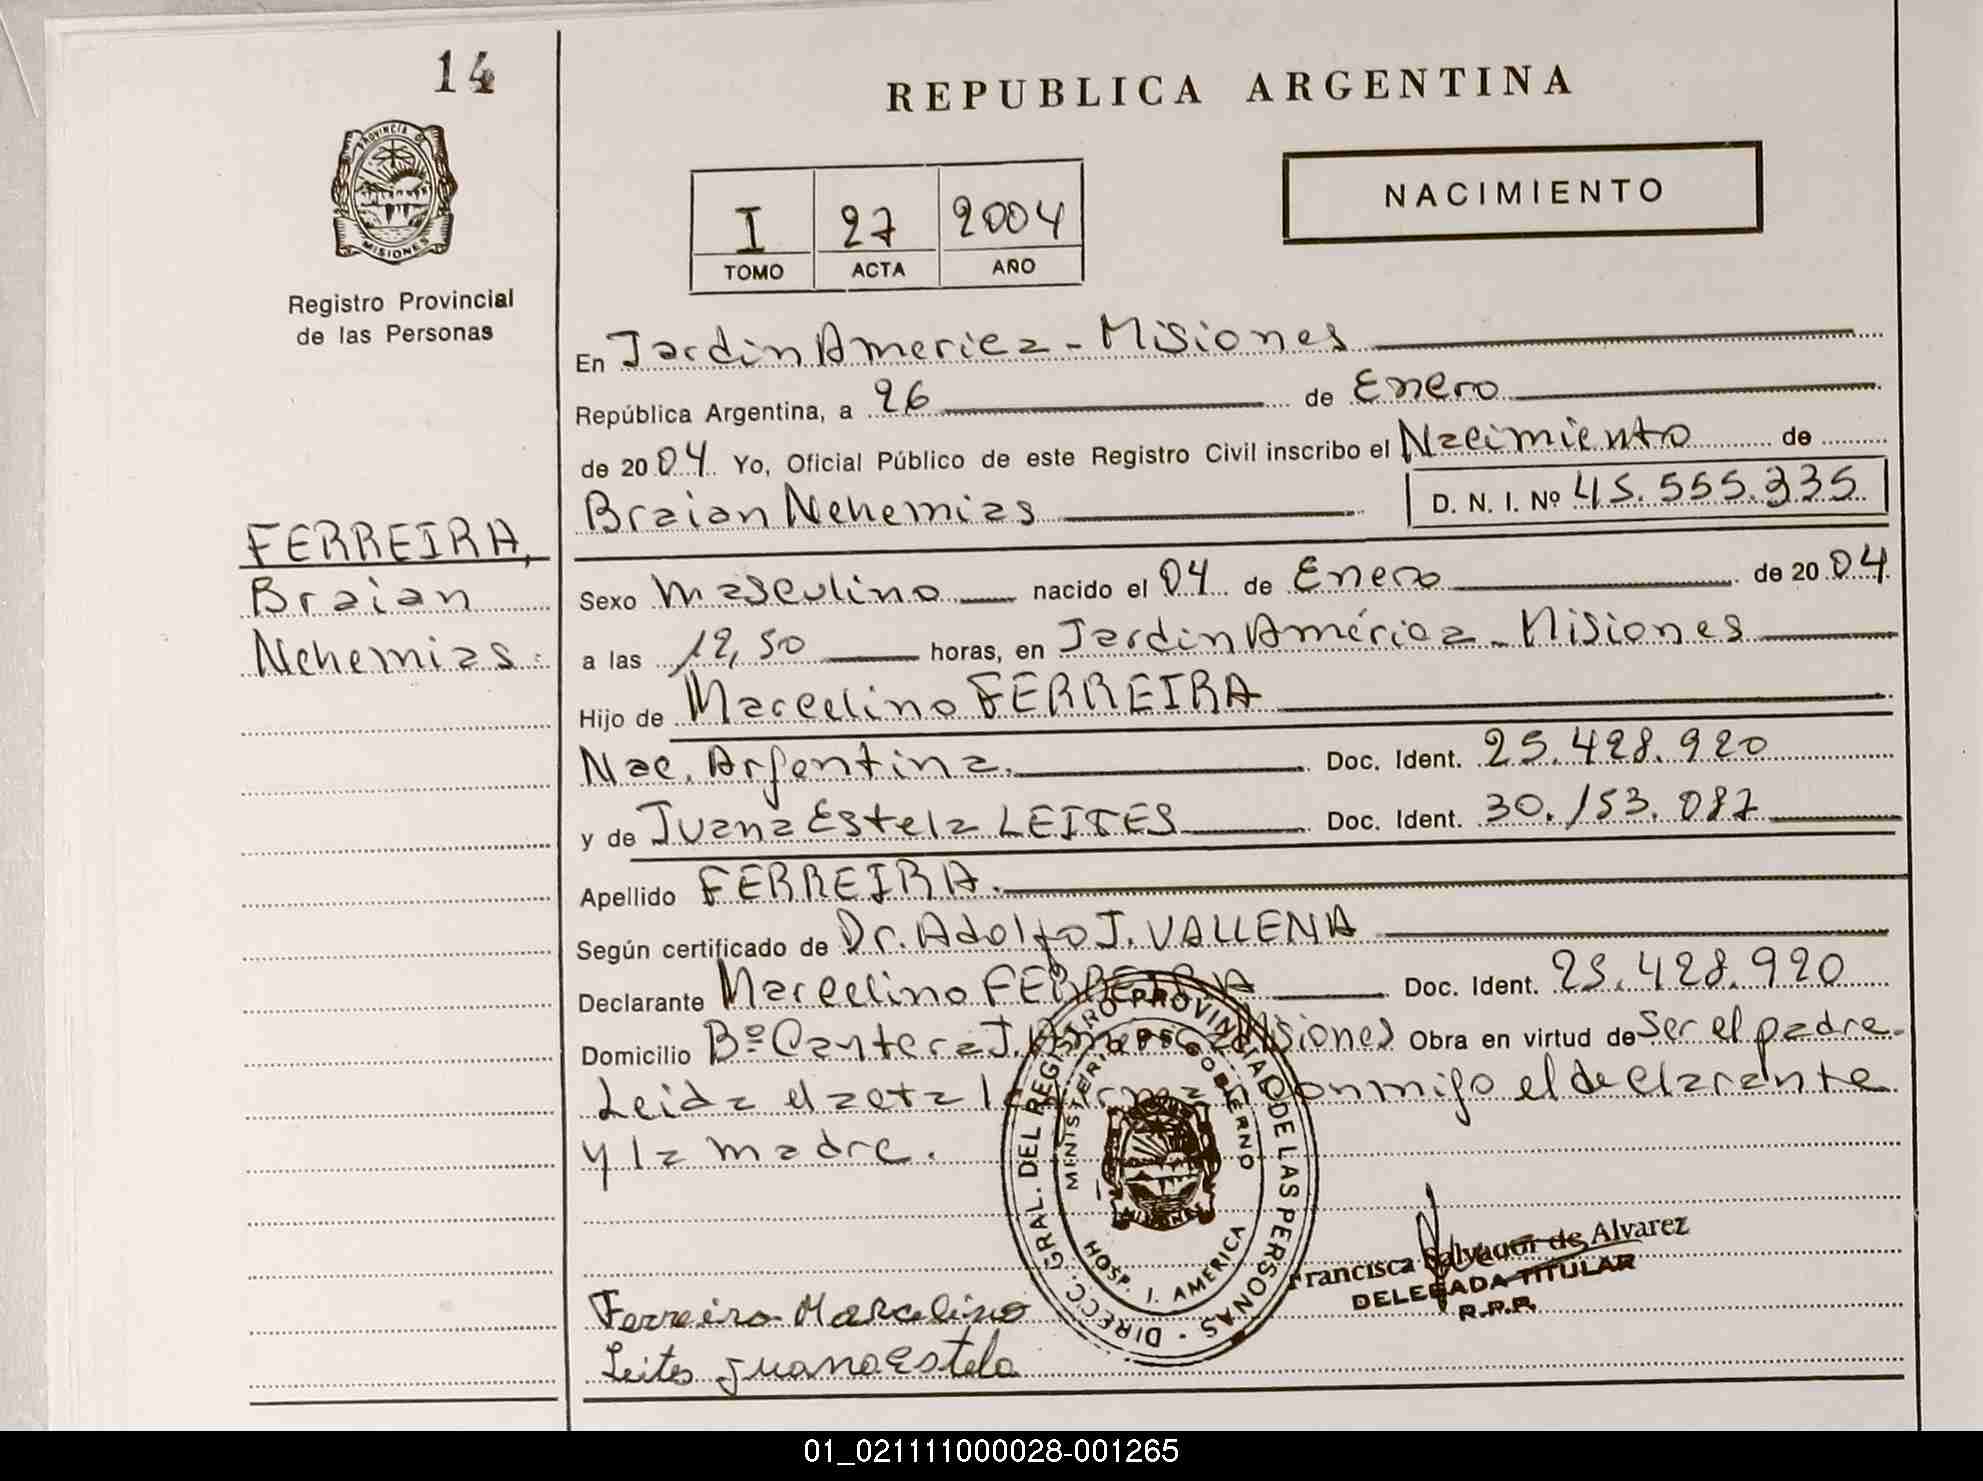 14
REPUBLICA ARGENTINA
PROVINCIA DE
MISIONES
Registro Provincial
de las Personas
NACIMIENTO
I 27 2004
TOMO ACTA AÑO
En Jardin America - Misiones
República Argentina, a 26 de Enero
de 2004 Yo, Oficial Público de este Registro Civil inscribo el Nacimiento de
Braian Nehemias D. N. I. Nº 45.555.335
FERREIRA,
Braian
Nehemias.
Sexo Masculino nacido el 04 de Enero de 2004
a las 12,50 horas, en Jardin América - Misiones
Hijo de Marcelino FERREIRA
Nac. Argentina. Doc. Ident. 25.428.920
y de Juana Estela LEITES Doc. Ident. 30.153.087
Apellido FERREIRA.
Según certificado de Dr. Adolfo J. VALLENA
Declarante Marcelino FERREIRA Doc. Ident. 25.428.920
Domicilio Bº Cantera J. America Misiones Obra en virtud de Ser el padre.
Leida el acta la firma conmigo el declarante
y la madre.
DIRECC. GRAL. DEL REGISTRO PROVINCIAL DE LAS PERSONAS
MINISTERIO DE GOBIERNO
MISIONES
HOSP. J. AMERICA
Francisca Salvador de Alvarez
DELEGADA TITULAR
R.P.P.
Ferreira Marcelino
Leites Juana Estela
01_021111000028-001265